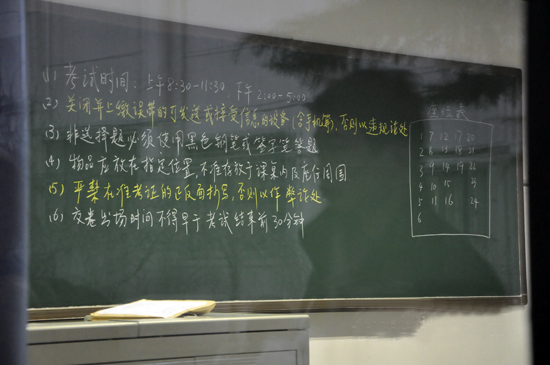 (1) 考试时间：上午8:30-11:30 下午2:00-5:00
(2) 关闭并上缴误带的可发送或接受信息的设备(含手机等)，否则以违规论处
(3) 非选择题必须使用黑色钢笔或签字笔答题
(4) 物品应放在指定位置，不准存放于课桌内及座位周围
(5) 严禁在准考证的正反面抄写，否则以作弊论处
(6) 交卷出场时间不得早于考试结束前30分钟
座位表
1 7 12 17 20
2 8 13 18 21
3 9 14 19 22
4 10 15 23
5 11 16 24
6